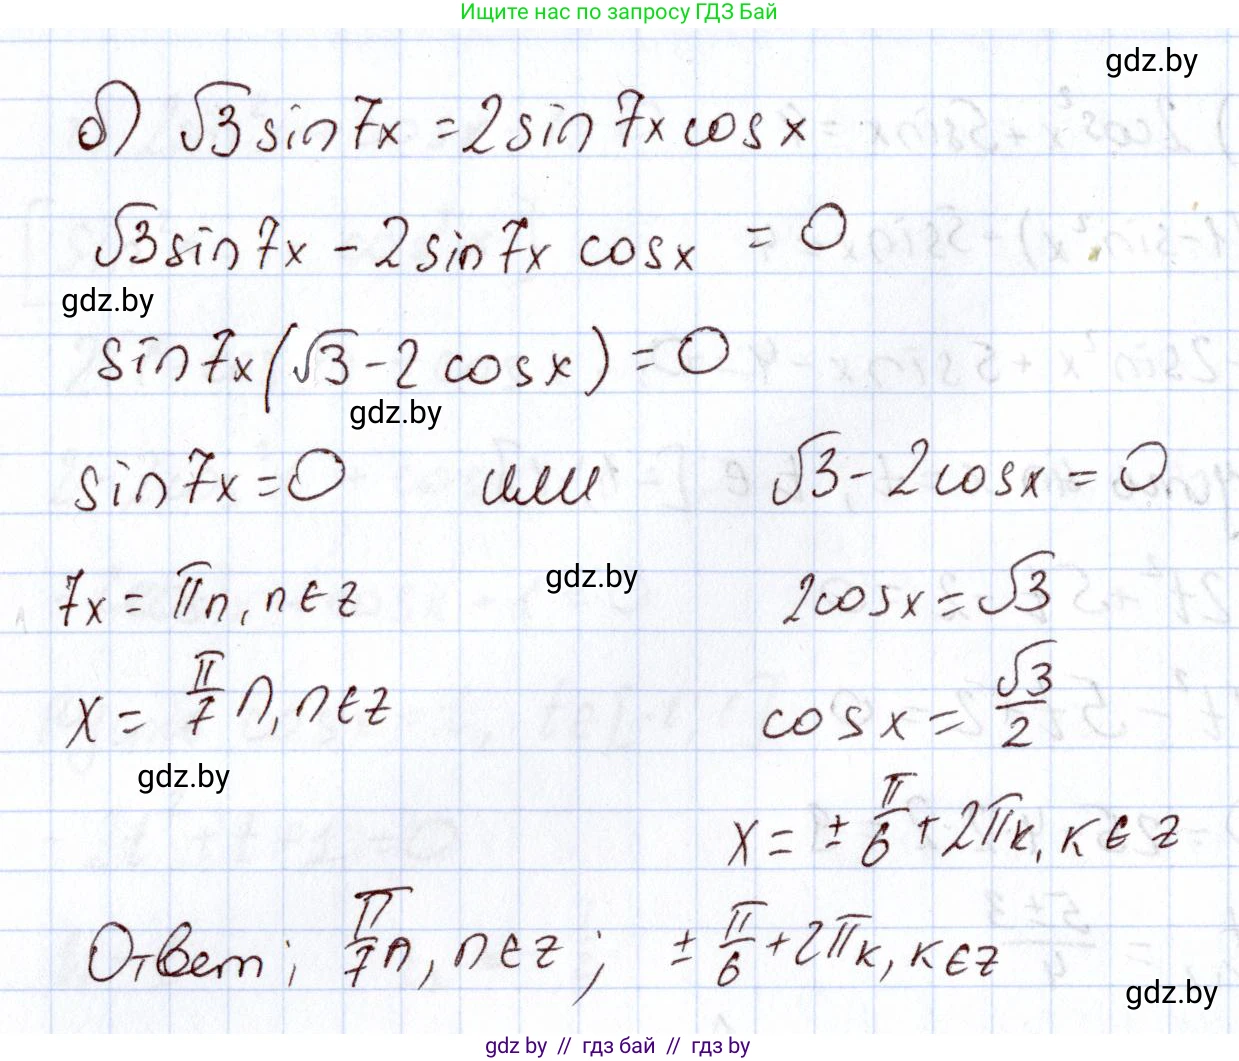 Ищите нас по запросу ГДЗ Бай
gdz.by
б) √3 sin7x = 2sin7x cosx
√3 sin7x - 2sin7x cosx = 0
gdz.by
sin7x(√3 - 2cosx) = 0
gdz.by
sin7x = 0 или √3 - 2cosx = 0
gdz.by
7x = πn, n∈z 2cosx = √3
x = π/7 n, n∈z cosx = √3/2
gdz.by
x = ± π/6 + 2πk, k∈z
Ответ; π/7 n, n∈z; ± π/6 + 2πk, k∈z
gdz.by
gdz by // гдз бай // gdz by